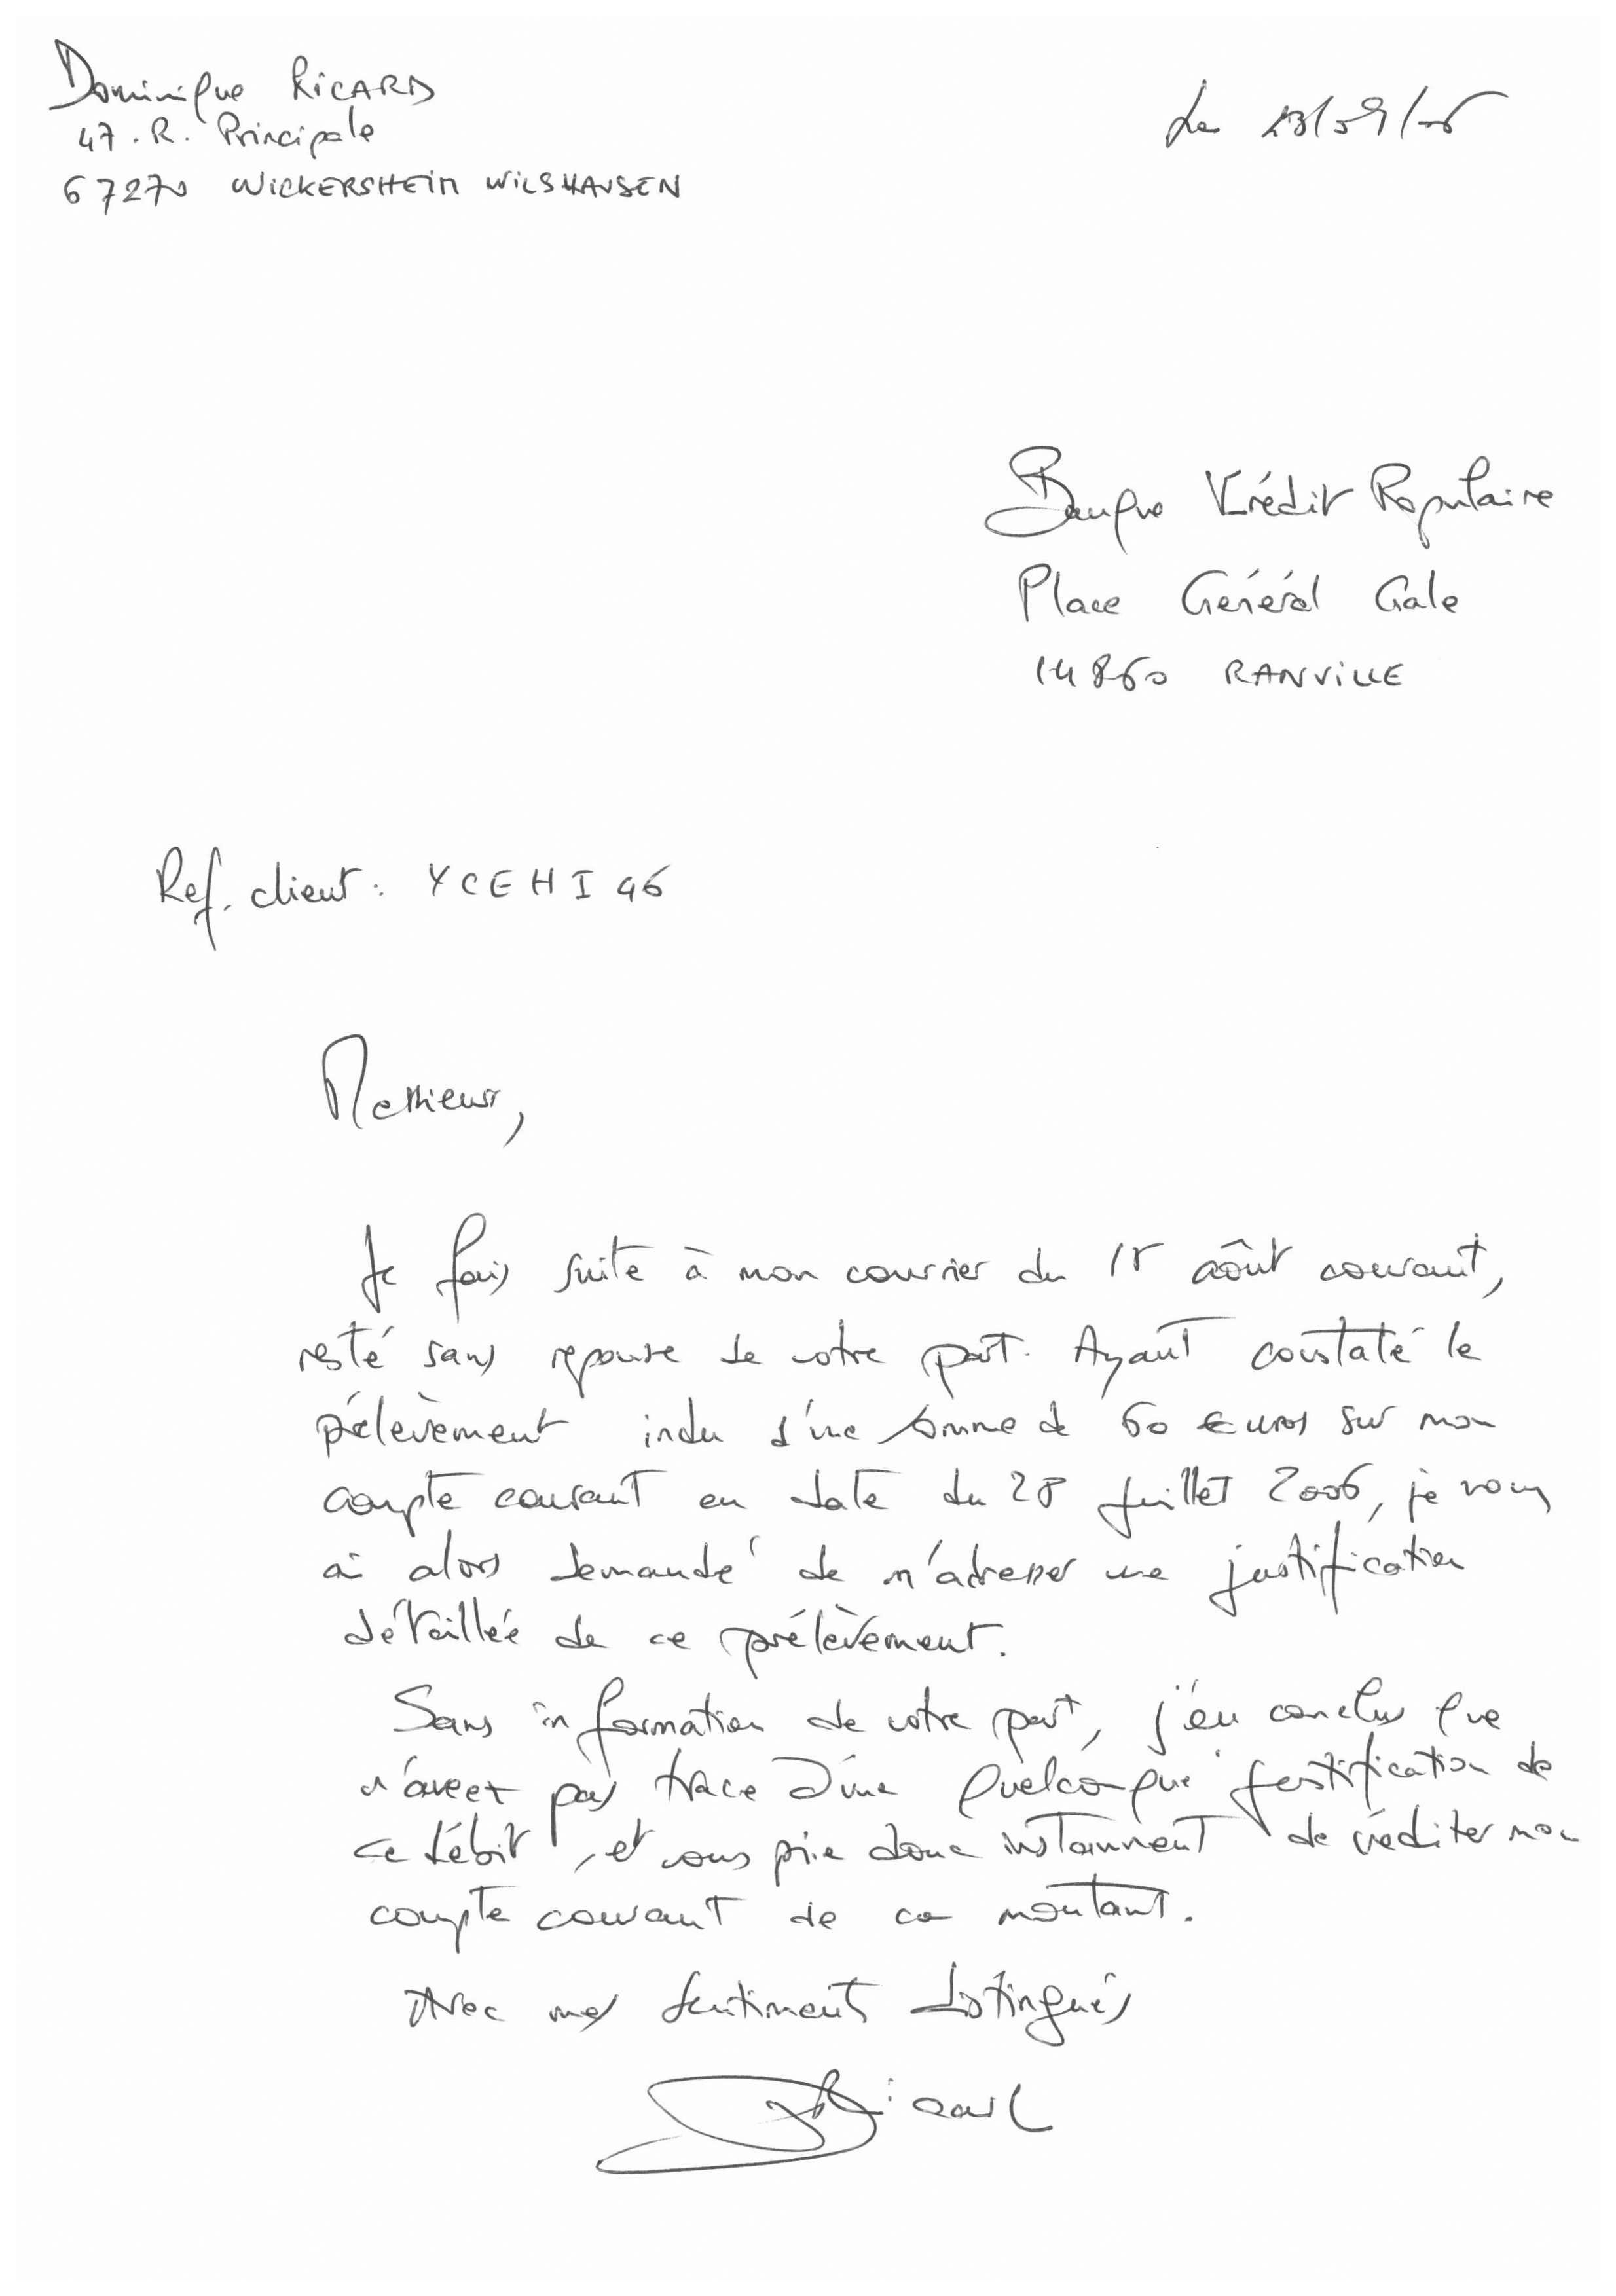 Dominique RICARD
47. R. Principale
67270 WICKERSHEIM WILSHAUSEN
Le 13/09/06
Banque Krédit Populaire
Place Général Gale
14860 RANVILLE
Ref. client : YCEHI46
Messieurs,
Je fais suite à mon courrier du 15 aôut courant,
resté sans reponse de votre part. Ayant constaté le
prélèvement indu d'une somme de 60 Euros sur mon
compte courant en date du 28 Juillet 2006, je vous
ai alors demandé de m'adresser une justification
détaillée de ce prélèvement.
Sans information de votre part, j'en conclus que
n'avez pas trace d'une quelconque justification de
ce débit, et vous prie donc instamment de créditer mon
compte courant de ce montant.
Avec mes sentiments distingués
Ricard